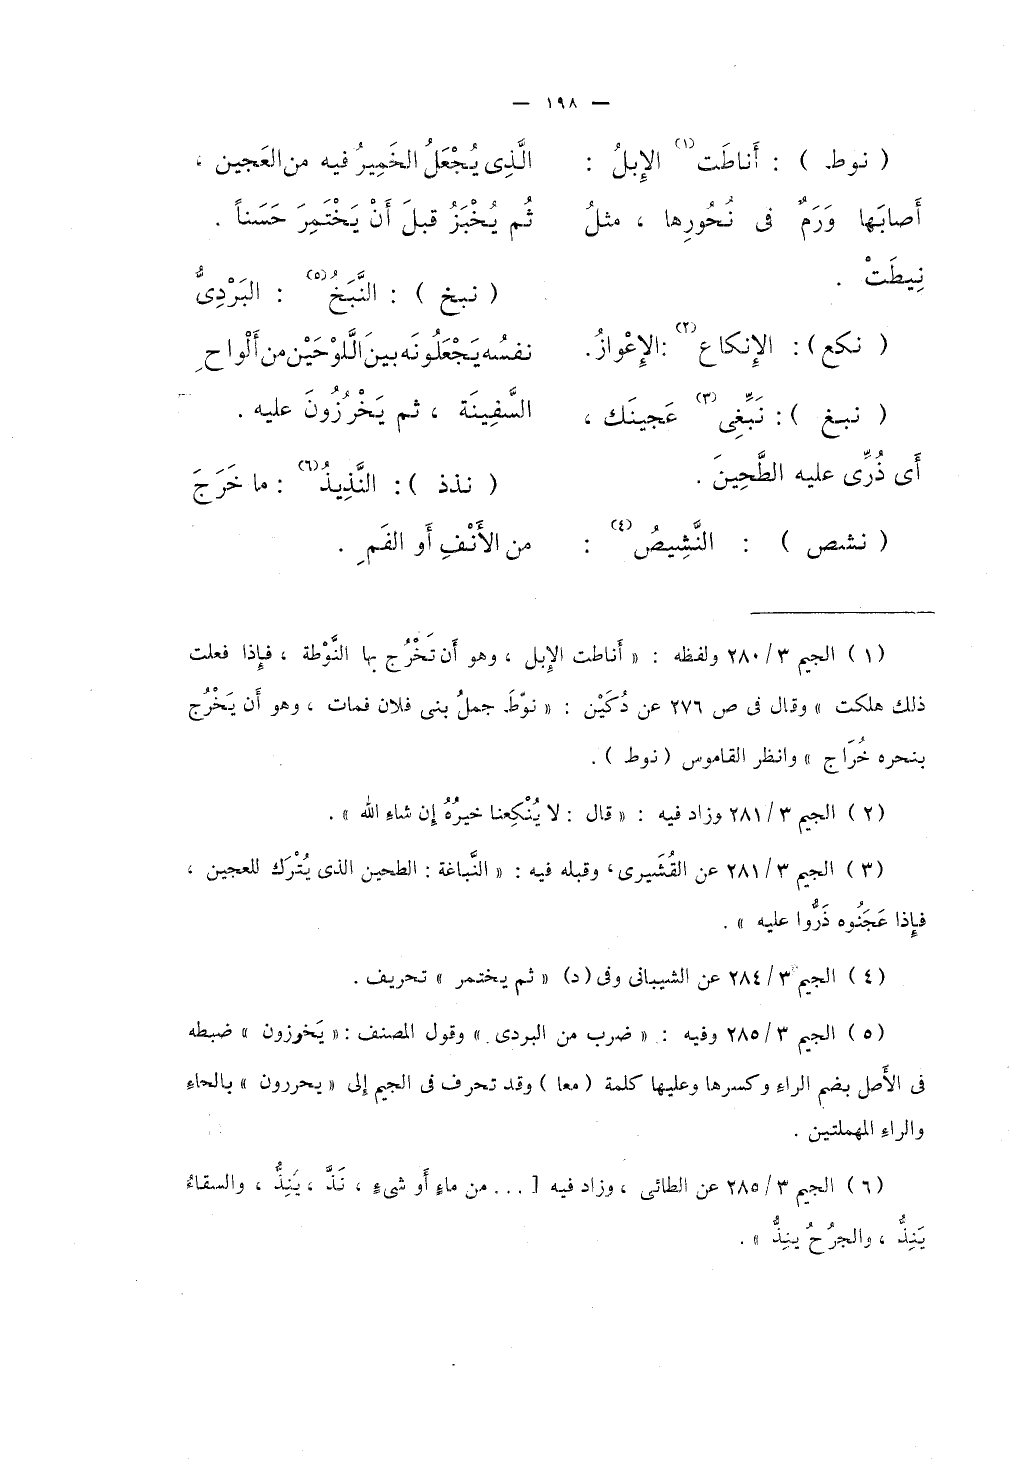 — ١٩٨ —
( نوط ) : أَناطَت(١) الإِبلُ :
أَصابَها وَرَمٌ فى نُحُورِها ، مثلُ
نِيطَتْ .
( نكع ) : الإِنكاع(٢) : الإِعْوازُ .
( نبغ ) : نَبِّغِى(٣) عَجينَك ،
أَى ذُرِّى عليه الطَّحِينَ .
( نشص ) : النَّشِيصُ(٤) :
الَّذِى يُجْعَلُ الخَمِيرُ فيه من العَجين ،
ثُم يُخْبَزُ قبلَ أَنْ يَخْتَمِرَ حَسَناً .
( نبخ ) : النَّبَخُ(٥) : البَرْدِىُّ
نفسُه يَجْعَلُونَه بينَ اللَّوْحَيْن من أَلْواحِ
السَّفِينَة ، ثم يَخْرُزُونَ عليه .
( نذذ ) : النَّذِيذُ(٦) : ما خَرَجَ
من الأَنْفِ أَو الفَمِ .
(١) الجيم ٣/٢٨٠ ولفظه : « أَناطت الإِبل ، وهو أَن تَخْرُج بها النَّوْطة ، فإِذا فعلت
ذلك هلكت » وقال فى ص ٢٧٦ عن دُكَيْن : « نوّطَ جملُ بنى فلان فمات ، وهو أَن يَخْرُج
بنحره خُرَاج » وانظر القاموس ( نوط ) .
(٢) الجيم ٣/٢٨١ وزاد فيه : « قال : لا يُنْكِعنا خيرُهُ إِن شاءِ الله » .
(٣) الجيم ٣/٢٨١ عن القُشَيرى ، وقبله فيه : « النَّباغة : الطحين الذى يُتْرَك للعجين ،
فإِذا عَجَنُوه ذَرُّوا عليه » .
(٤) الجيم ٣/٢٨٤ عن الشيبانى وفى ( د ) « ثم يختمر » تحريف .
(٥) الجيم ٣/٢٨٥ وفيه : « ضرب من البردى » وقول المصنف : « يَخرزون » ضبطه
فى الأَصل بضم الراءِ وكسرها وعليها كلمة ( معا ) وقد تحرف فى الجيم إِلى « يحررون » بالحاءِ
والراءِ المهملتين .
(٦) الجيم ٣/٢٨٥ عن الطائى ، وزاد فيه [ ... من ماءٍ أَو شىءٍ ، نَذَّ ، يَنِذُّ ، والسقاءُ
يَنِذُّ ، والجرُحُ ينِذُّ » .